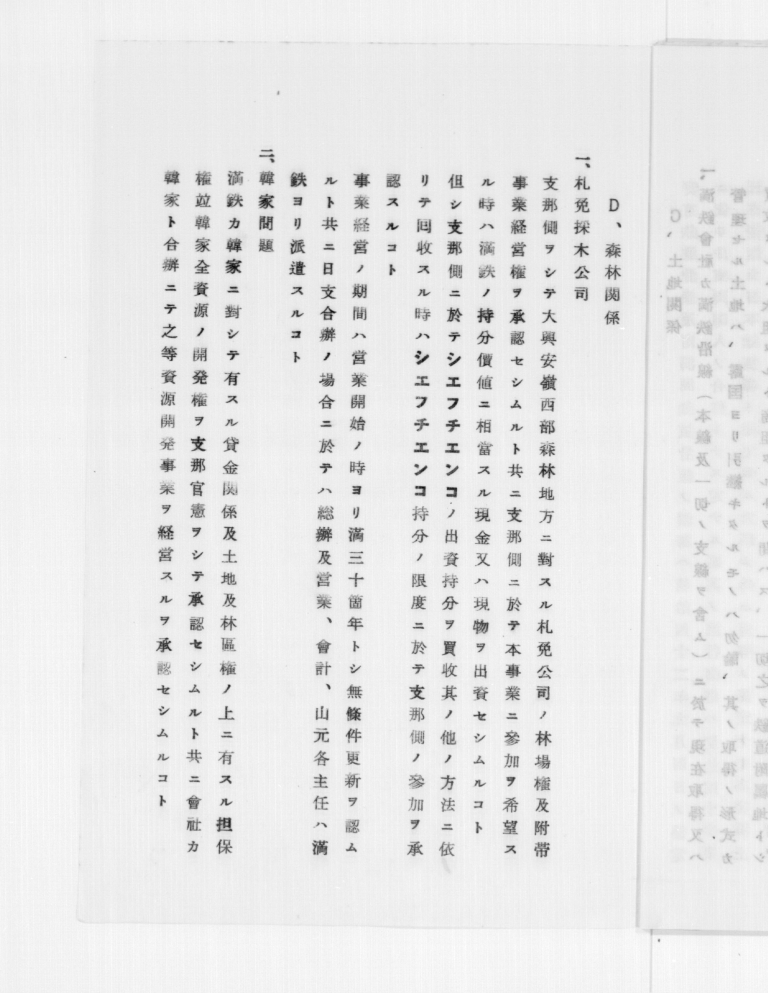 D、森林関係
一、札免採木公司
支那側ヲシテ大興安嶺西部森林地方ニ對スル札免公司ノ林場權及附帶
事業経営權ヲ承認セシムルト共ニ支那側ニ於テ本事業ニ參加ヲ希望ス
ル時ハ満鉄ノ持分價値ニ相當スル現金又ハ現物ヲ出資セシムルコト
但シ支那側ニ於テシエフチエンコノ出資持分ヲ買收其ノ他ノ方法ニ依
リテ回收スル時ハシエフチエンコ持分ノ限度ニ於テ支那側ノ參加ヲ承
認スルコト
事業経営ノ期間ハ営業開始ノ時ヨリ滿三十箇年トシ無條件更新ヲ認ム
ルト共ニ日支合辦ノ場合ニ於テハ総辦及営業、會計、山元各主任ハ満
鉄ヨリ派遣スルコト
二、韓家問題
満鉄カ韓家ニ對シテ有スル貸金関係及土地及林區權ノ上ニ有スル担保
權竝韓家全資源ノ開発權ヲ支那官憲ヲシテ承認セシムルト共ニ會社カ
韓家ト合辦ニテ之等資源開発事業ヲ経営スルヲ承認セシムルコト